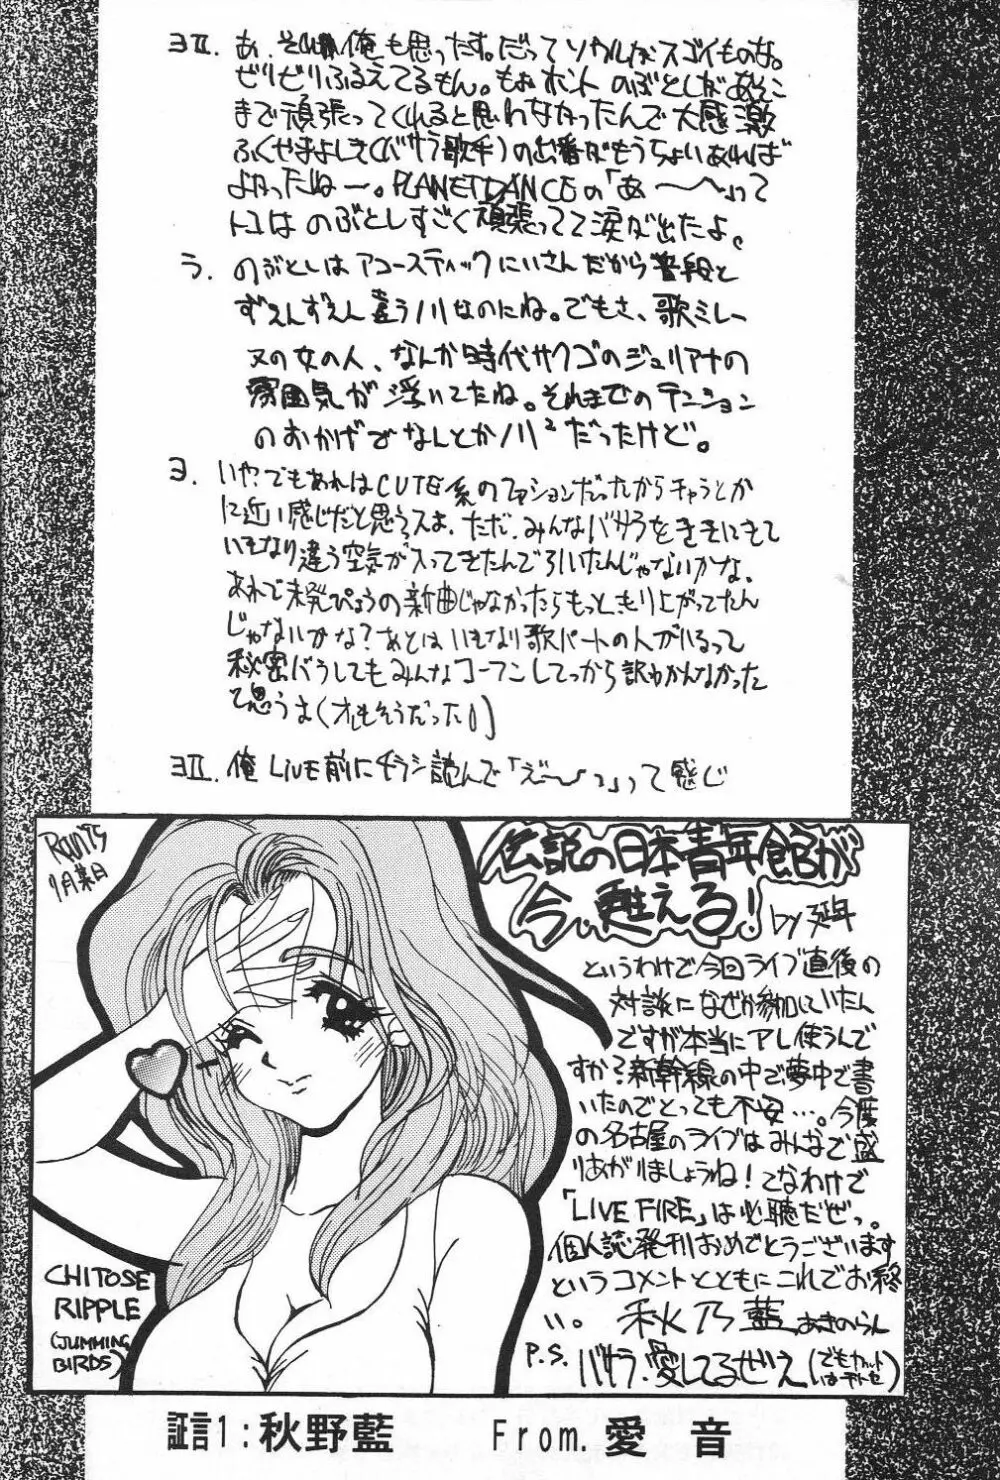 ヨII. あ、それ俺も思ったす。だってソウルがスゴイものな。
ビリビリふるえてるもん。もぉホント のぶとしがあそこ
まで頑張ってくれると思わなかったんで大感激
ふくやまよしき(バサラ歌手)の出番がもうちょいあれば
よかったねー。PLANET DANCEの「あ〜〜」って
トコは のぶとしすごく頑張ってて涙が出たよ。
う. のぶとしは アコースティックにいさん だから普段と
ずぇんずぇん違うノリなのにね。でもさ、歌ミレー
ヌの女の人、なんか時代サクゴのジュリアナの
雰囲気が 浮いてたね。それまでのテンション
のおかげでなんとかノリ²だったけど。
ヨ. いや?でもあれはCUTE系のファションだったからキャラとか
に近い感じだと思うスよ。ただ、みんなバサラをききにきて
いきなり違う空気が入ってきたんで引いたんじゃないかな。
あれで未発ぴょうの新曲じゃなかったらもっともり上がってたん
じゃないかな?あとはいきなり歌パートの人がいるって
秘密バラしてもみんなコーフンしてっから訳わかんなかった
て思うよ(オレもそうだった!)
ヨII. 俺 LIVE前にチラシ読んで「え〜〜っ」って感じ
9月某日
伝説の日本青年館が
今、甦える!
by 延年
というわけで今回ライブ直後の
対談になぜか参加していたん
ですが本当にアレ使うんで
すか?新幹線の中で夢中で書
いたのでとっても不安…。今度
の名古屋のライブはみんなで盛
りあがりましょうね!てなわけで
「LIVE FIRE」は必聴だぜっ。
個人誌発刊おめでとうございます
というコメントとともにこれでお終
い。 秋乃藍 あきのらん
P.S. バサラ愛してるぜぃえ
CHITOSE
RIPPLE
(JUMMING
BIRDS)
証言1:秋野藍 From. 愛 音